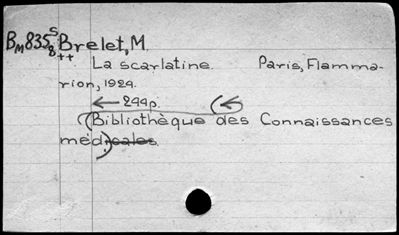 BM835 S8 Brelet, M.
++ La scarlatine. Paris, Flamma-
rion, 1924.
← 244p. (←
(Bibliothèque des Connaissances
méd) icales.